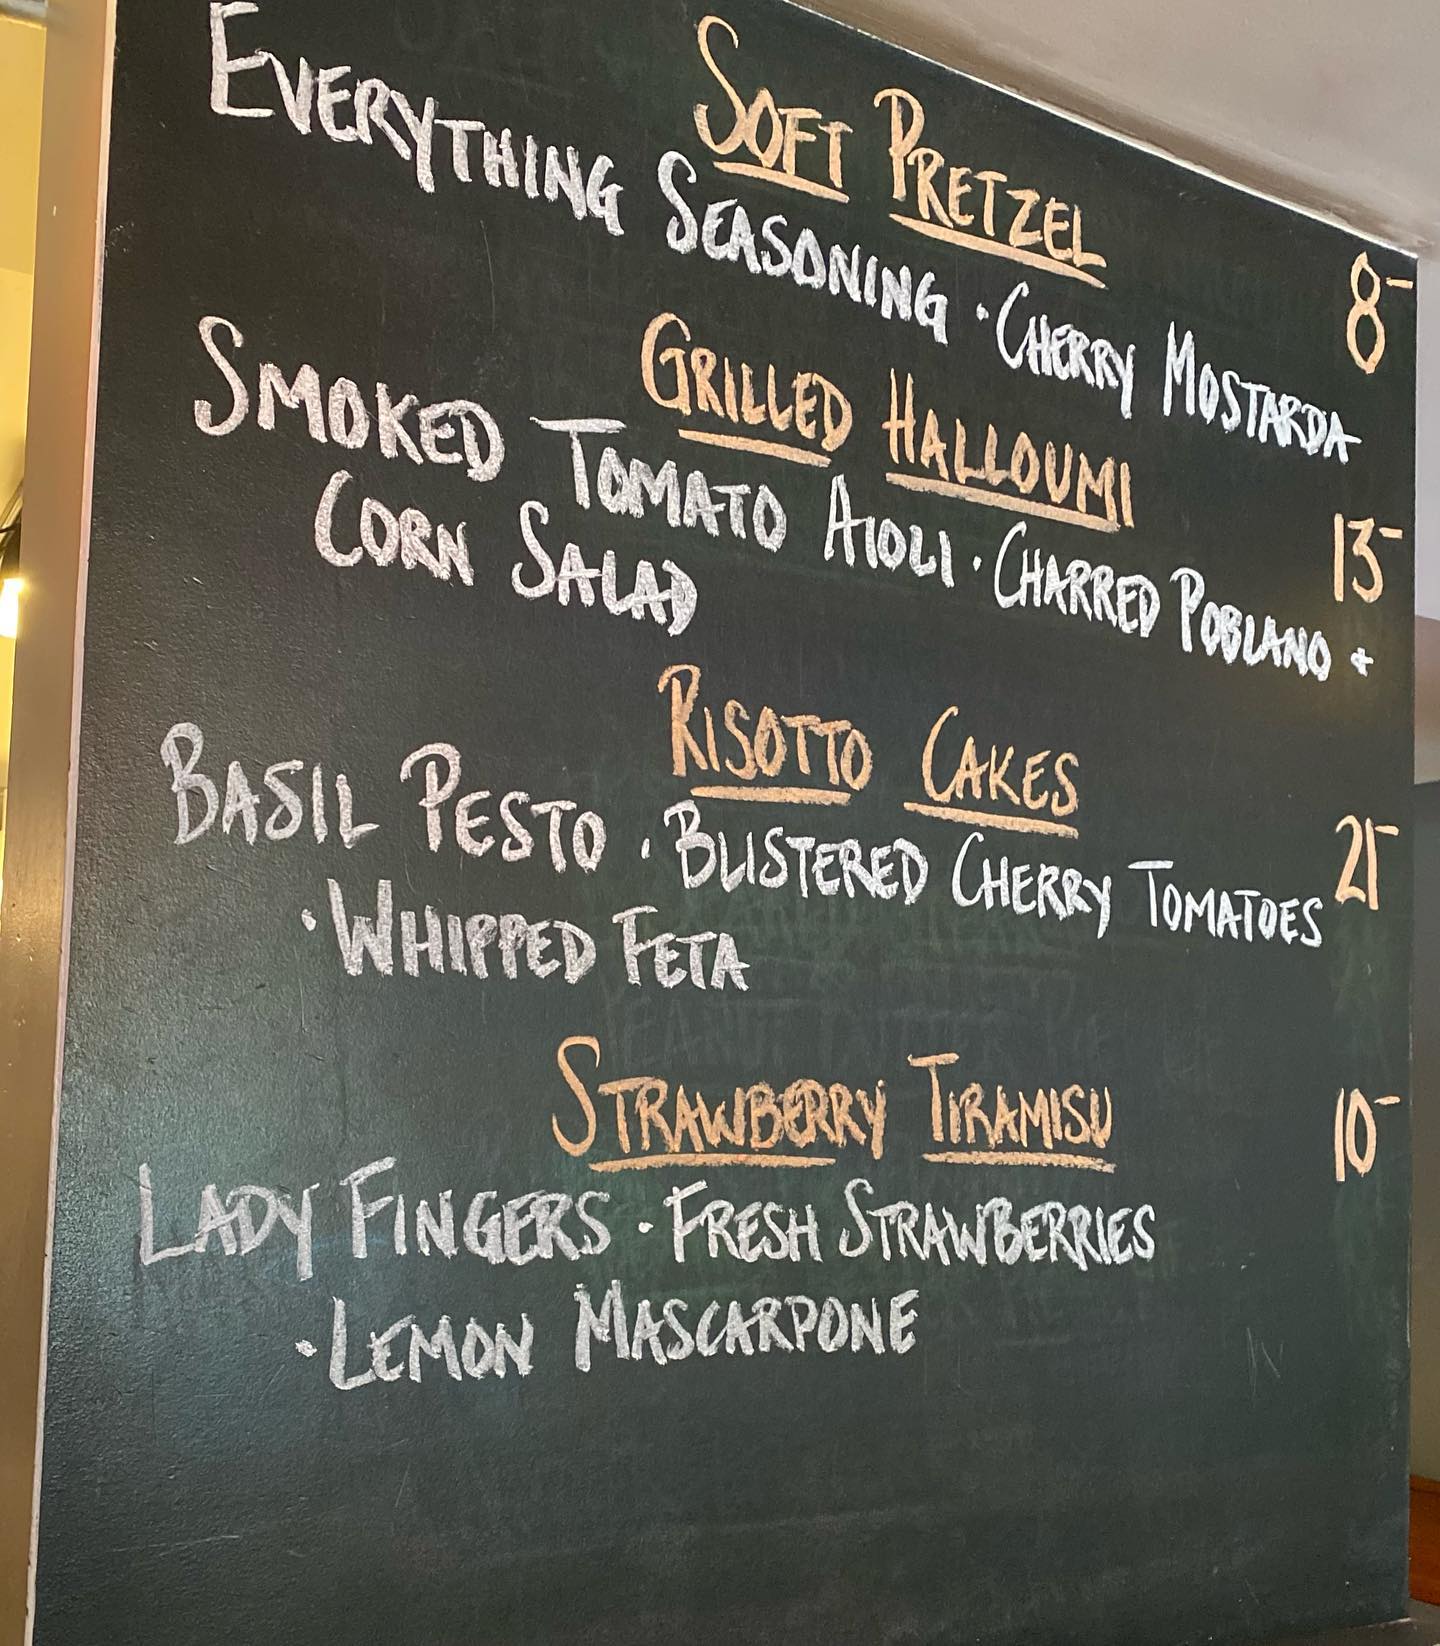 SOFT PRETZEL
8-
EVERYTHING SEASONING · CHERRY MOSTARDA
GRILLED HALLOUMI
13-
SMOKED TOMATO AIOLI · CHARRED POBLANO +
CORN SALAD
RISOTTO CAKES
21-
BASIL PESTO · BLISTERED CHERRY TOMATOES
· WHIPPED FETA
STRAWBERRY TIRAMISU
10-
LADY FINGERS · FRESH STRAWBERRIES
· LEMON MASCARPONE